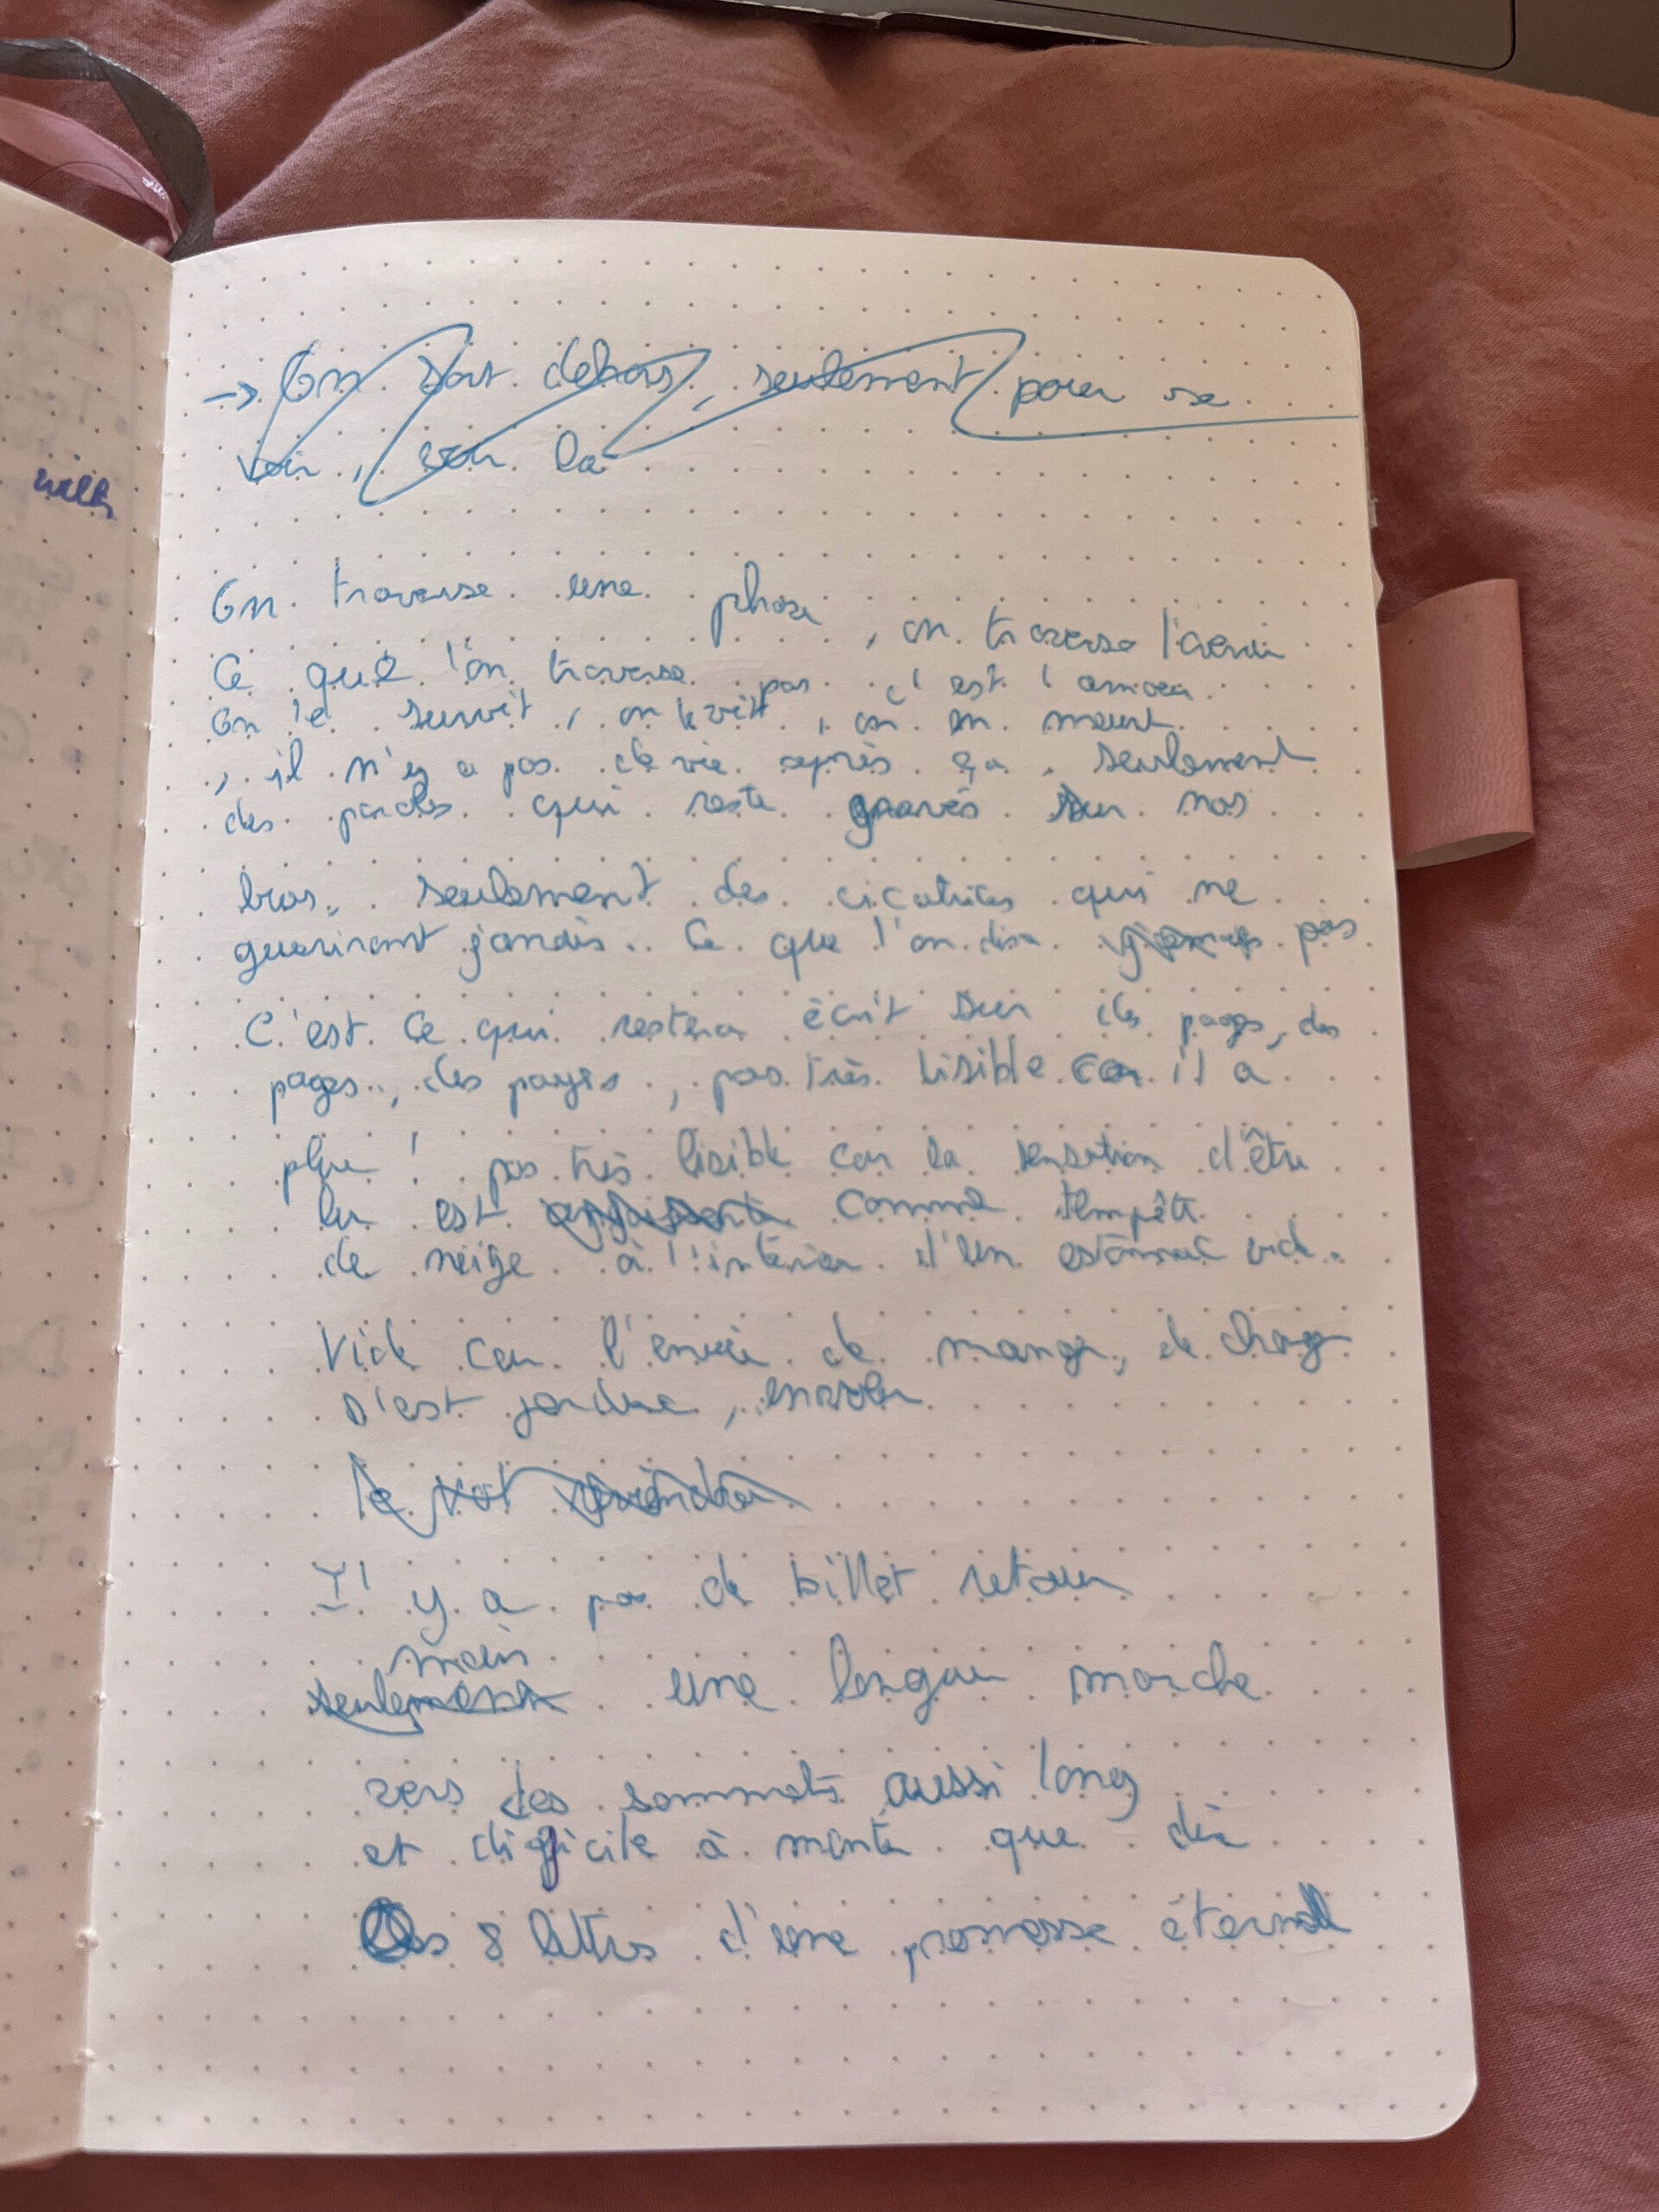 will
→ On sort dehors, seulement pour se
voir, voir la
On traverse une phase, on traverse l'avenir
Ce que l'on traverse pas c'est l'amour
On le survit, on le vit, on en meurt
, il n'y a pas de vie après ça, seulement
des paroles qui reste gravés sur nos
bras, seulement des cicatrices qui ne
gueriront jamais. Ce que l'on dira pas
C'est ce qui restera écrit sur des pages, des
pages, des pages, pas très lisible car il a
plu ! pas très lisible car la sensation d'être
lu est comme tempête
de neige à l'intérieur d'un estomac vide.
Vide car l'envie de manger, de
s'est perdue,
le
Il y a pas de billet retour
mais
seulement une longue marche
vers des sommets aussi long
et difficile à monter que dire
les 8 lettres d'une promesse éternelle